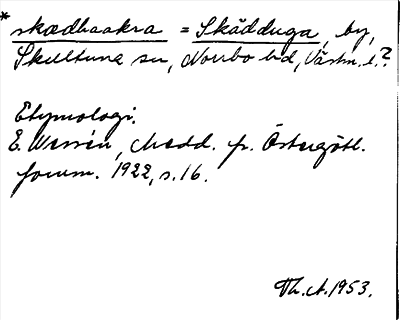 * skædhaakra = Skädduga, by,
Skultuna sn, Norrbo hd, Västm. l.?
Etymologi.
E. Wessén, Medd. fr. Östergötl.
fornm. 1922, s. 16.
Th. A. 1953.